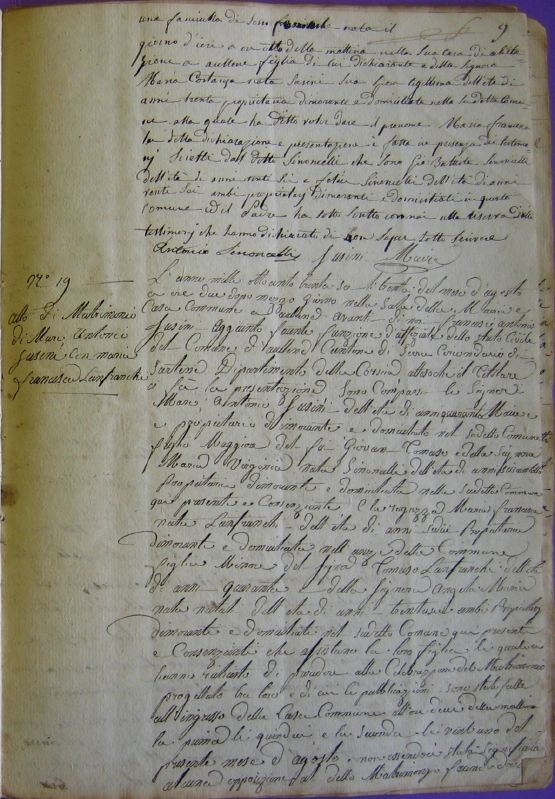 una fanciulla di sesso femminile nata il
9
giorno d'ieri a ore otto della mattina nella sua casa di abita
zione a aullene figlia di lui dichiarante e della Signora
Maria Costanza nata Susini sua sposa legittima dell'età di
anni trenta propietaria dimorante e domiciliata nella sudetta Comu
ne alla quale ha detto voler dare il prenome Maria francesca
la detta dichiarazione e presentazione è fatta in presenza dei testimo
nj scielti dal detto Sinoncelli che sono Gio Battista Sinoncelli
dell'età di anni venti sei e felice Sinoncelli dell'età di anni
venti sei ambi propietarj dimoranti e domiciliati in questo
Comune ed il padre ha sotto scritto con noi alla riserva delli
testimonj che hanno dichiarato di non saper sotto scrivere
Antonio Sinoncelli Susini Maire
N.o 19
atto di Matrimonio
di Marc' Antonio
Susini con maria
francesca Lanfranchi
L'anno mille otto cento trenta del mese d'agosto
a ore due dopo mezzo giorno nella Sala della
Casa Commune a aullene avanti di noi francesc' antonio
Susini aggiunto facente funzione d'uffiziale dello stato Civile
del Comune di aullene Cantone di Serra Circondario di
Sartene Dipartimento della Corsica
Sono Comparsi il Signor
Marc' Antonio Susini dell'età di anni quaranta
e propietario dimorante e domiciliato nel sudetto Comune
figlio Maggiore del fù Giovan Tomaso e della Signora
Maria Virginia nata Sinoncelli dell'età di anni
Propietaria dimorante e domiciliata nella sudetta Commune
qui presente e Consenziente e la ragazza Maria francesca
nata Lanfranchi dell'età di anni sedici Propietaria
dimorante e domiciliata nella della Commune
figlia Minore del Tomaso Lanfranchi dell'età
di anni quaranta e della Signora Angela Maria
nata natali dell'età di anni trentasei ambi Propietarj
dimoranti e domiciliati nel sudetto Comune qui presenti
e Consenzienti che assistano la loro figlia li quali ci
hanno richiesto di procedere alla Celebrazione del Matrimonio
progettato tra loro e di cui le pubblicazioni sono state fatte
all'ingresso della Casa Commune all'ore dieci della mattina
la prima li quindici e la seconda li vent'uno del
presente mese d'agosto e non essendoci stata significata
alcuna opposizione al detto Matrimonio facendo dritto